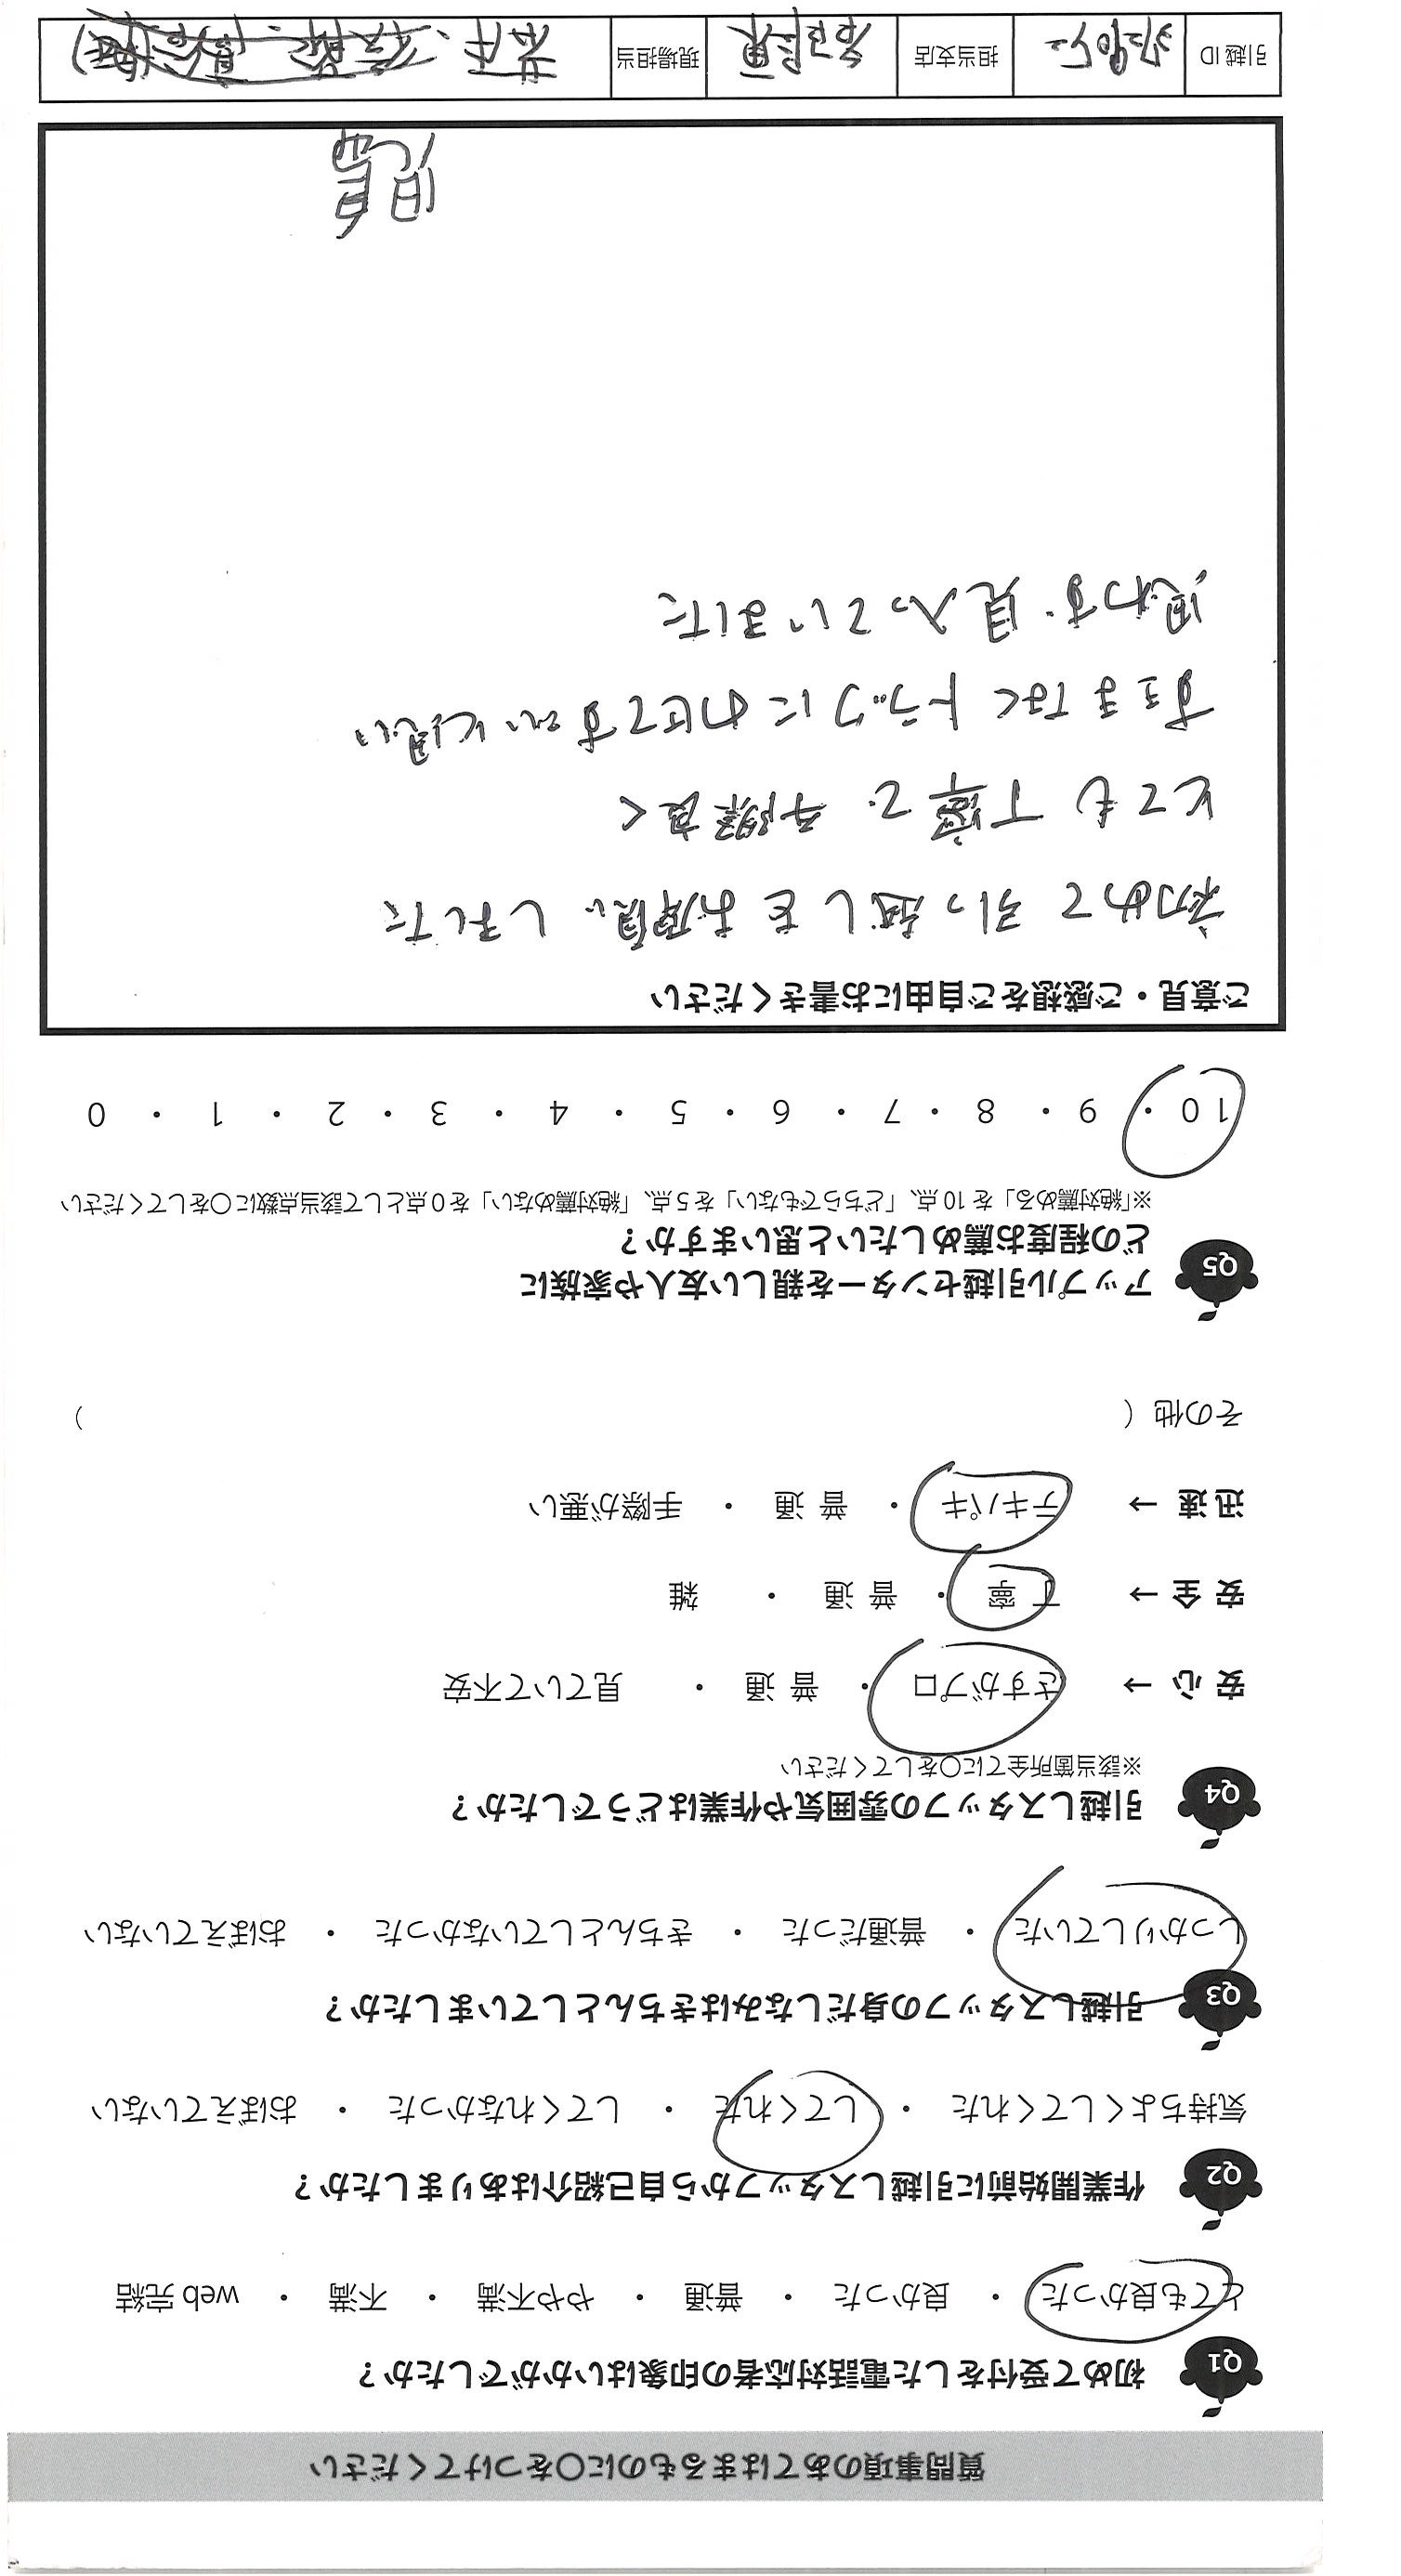 質問事項のあてはまるものに○をつけてください
Q1 初めて受付をした電話対応者の印象はいかがでしたか？
とても良かった ・ 良かった ・ 普通 ・ やや不満 ・ 不満 ・ web 完結
Q2 作業開始前に引越しスタッフから自己紹介はありましたか？
気持ちよくしてくれた ・ してくれた ・ してくれなかった ・ おぼえていない
Q3 引越しスタッフの身だしなみはきちんとしていましたか？
しっかりしていた ・ 普通だった ・ きちんとしていなかった ・ おぼえていない
Q4 引越しスタッフの雰囲気や作業はどうでしたか？
※該当箇所全てに○をしてください
安 心 → さすがプロ ・ 普 通 ・ 見ていて不安
安 全 → 丁 寧 ・ 普 通 ・ 雑
迅 速 → テキパキ ・ 普 通 ・ 手際が悪い
その他（ ）
Q5 アップル引越センターを親しい友人や家族に
どの程度お薦めしたいと思いますか？
※「絶対薦める」を 10 点、「どちらでもない」を 5 点、「絶対薦めない」を 0 点として該当点数に○をしてください
10 ・ 9 ・ 8 ・ 7 ・ 6 ・ 5 ・ 4 ・ 3 ・ 2 ・ 1 ・ 0
ご意見・ご感想をご自由にお書きください
初めて 引っ越し を お願い しました
とても 丁寧 で 手際良く
すきまなく トラックに のせて すごいと思い
思わず 見入っていました
引越 ID 担当支店 現場担当